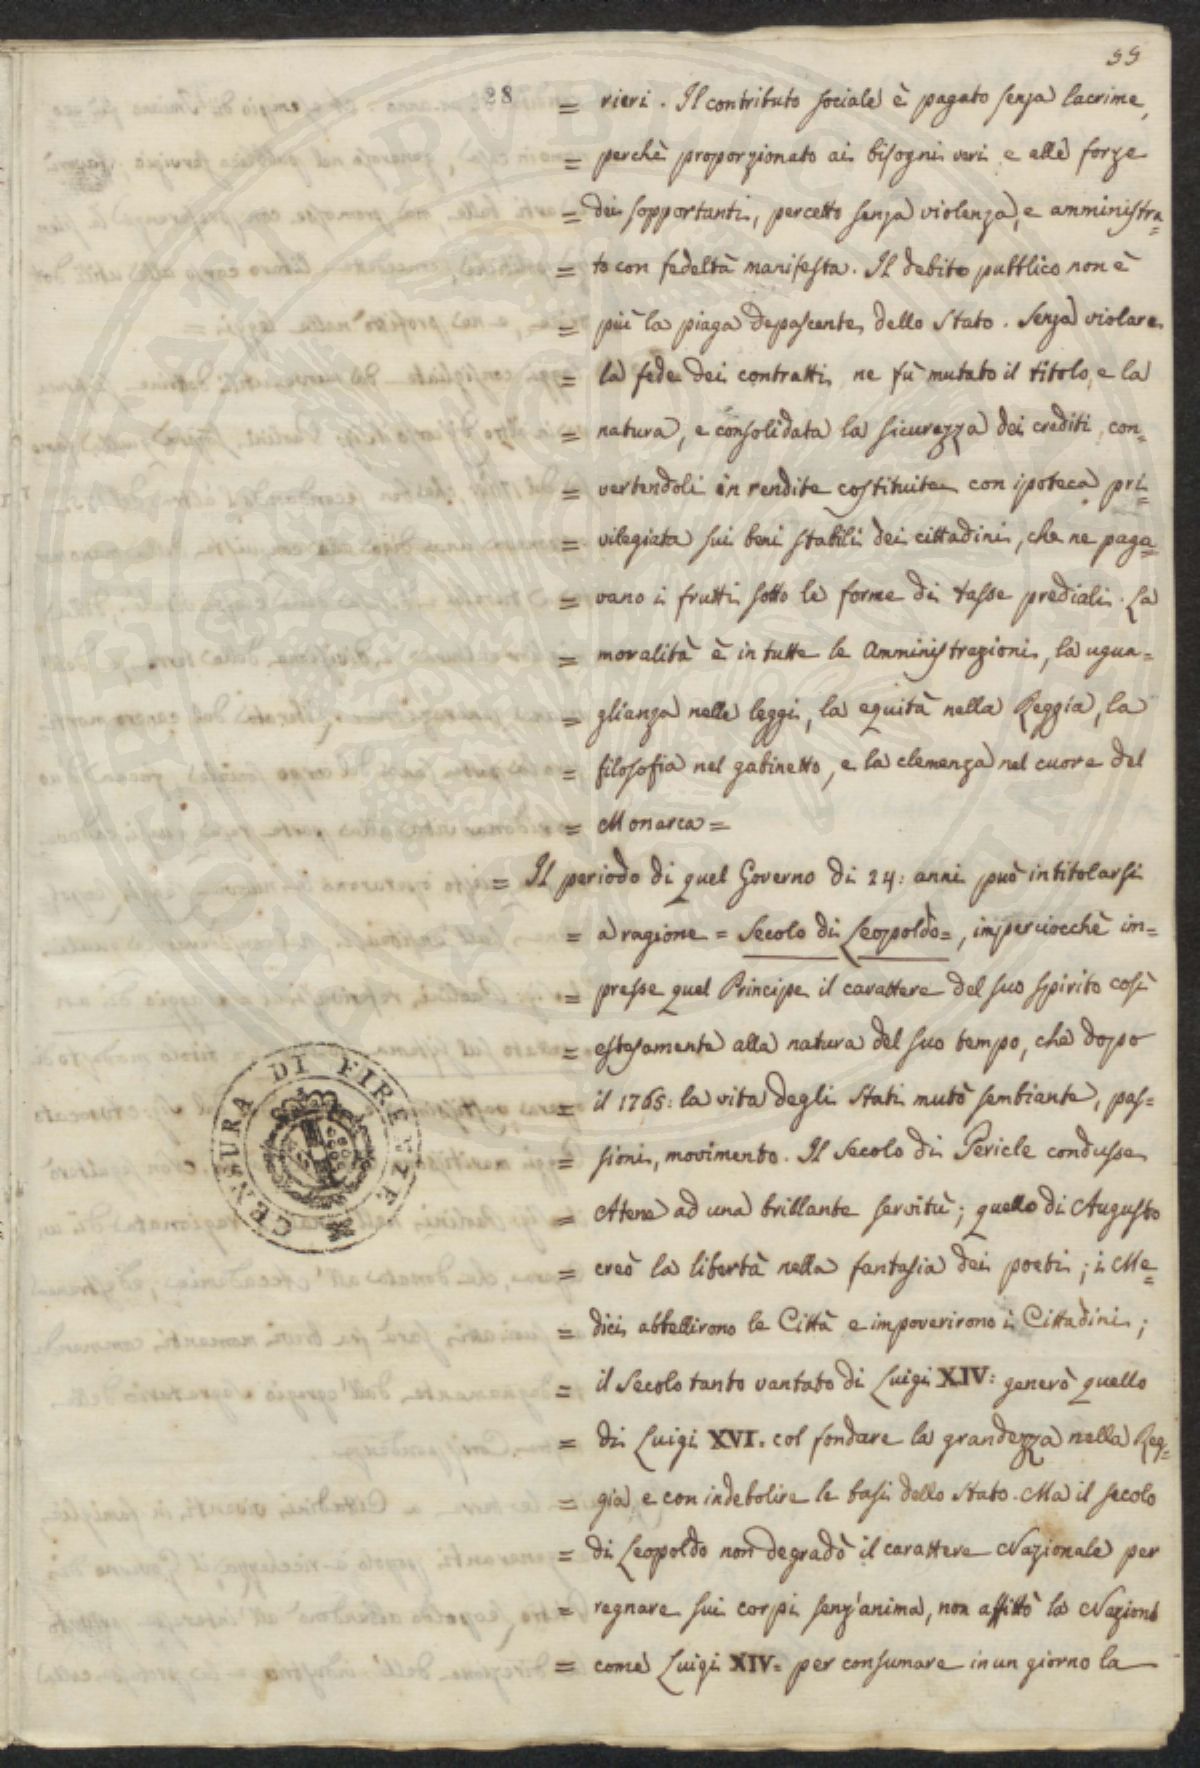 55
28
= rieri. Il contributo sociale è pagato senza lacrime,
= perchè proporzionato ai bisogni veri e alle forze
= dei sopportanti, percetto senza violenza, e amministra=
= to con fedeltà manifesta. Il debito pubblico non è
= più la piaga depascente dello Stato. Senza violare
= la fede dei contratti ne fù mutato il titolo, e la
= natura, e consolidata la sicurezza dei crediti con=
= vertendoli in rendite costituite con ipoteca pri=
= vilegiata sui beni stabili dei cittadini, che ne paga=
= vano i frutti sotto le forme di tasse prediali. La
= moralità è in tutte le Amministrazioni, la ugua=
= glianza nelle leggi, la equità nella Reggia, la
= filosofia nel gabinetto, e la clemenza nel cuore del
= Monarca =
= Il periodo di quel Governo di 24: anni può intitolarsi
= a ragione = Secolo di Leopoldo =, imperciocchè im=
= presse quel Principe il carattere del suo spirito così
= estesamente alla natura del suo tempo, che dopo
= il 1765: la vita degli Stati mutò sembiante, pas=
= sioni, movimento. Il Secolo di Pericle condusse
= Atene ad una brillante servitù; quello di Augusto
= creò la libertà nella fantasia dei poeti; i Me=
= dici abbellirono le Città e impoverirono i Cittadini;
= il Secolo tanto vantato di Luigi XIV: generò quello
= di Luigi XVI. col fondare la grandezza nella Reg=
= gia, e con indebolire le basi dello Stato. Ma il secolo
= di Leopoldo non degradò il carattere Nazionale per
= regnare sui corpi senz'anima, non affittò la Nazione
= come Luigi XIV= per consumare in un giorno la
CENSURA DI FIRENZE